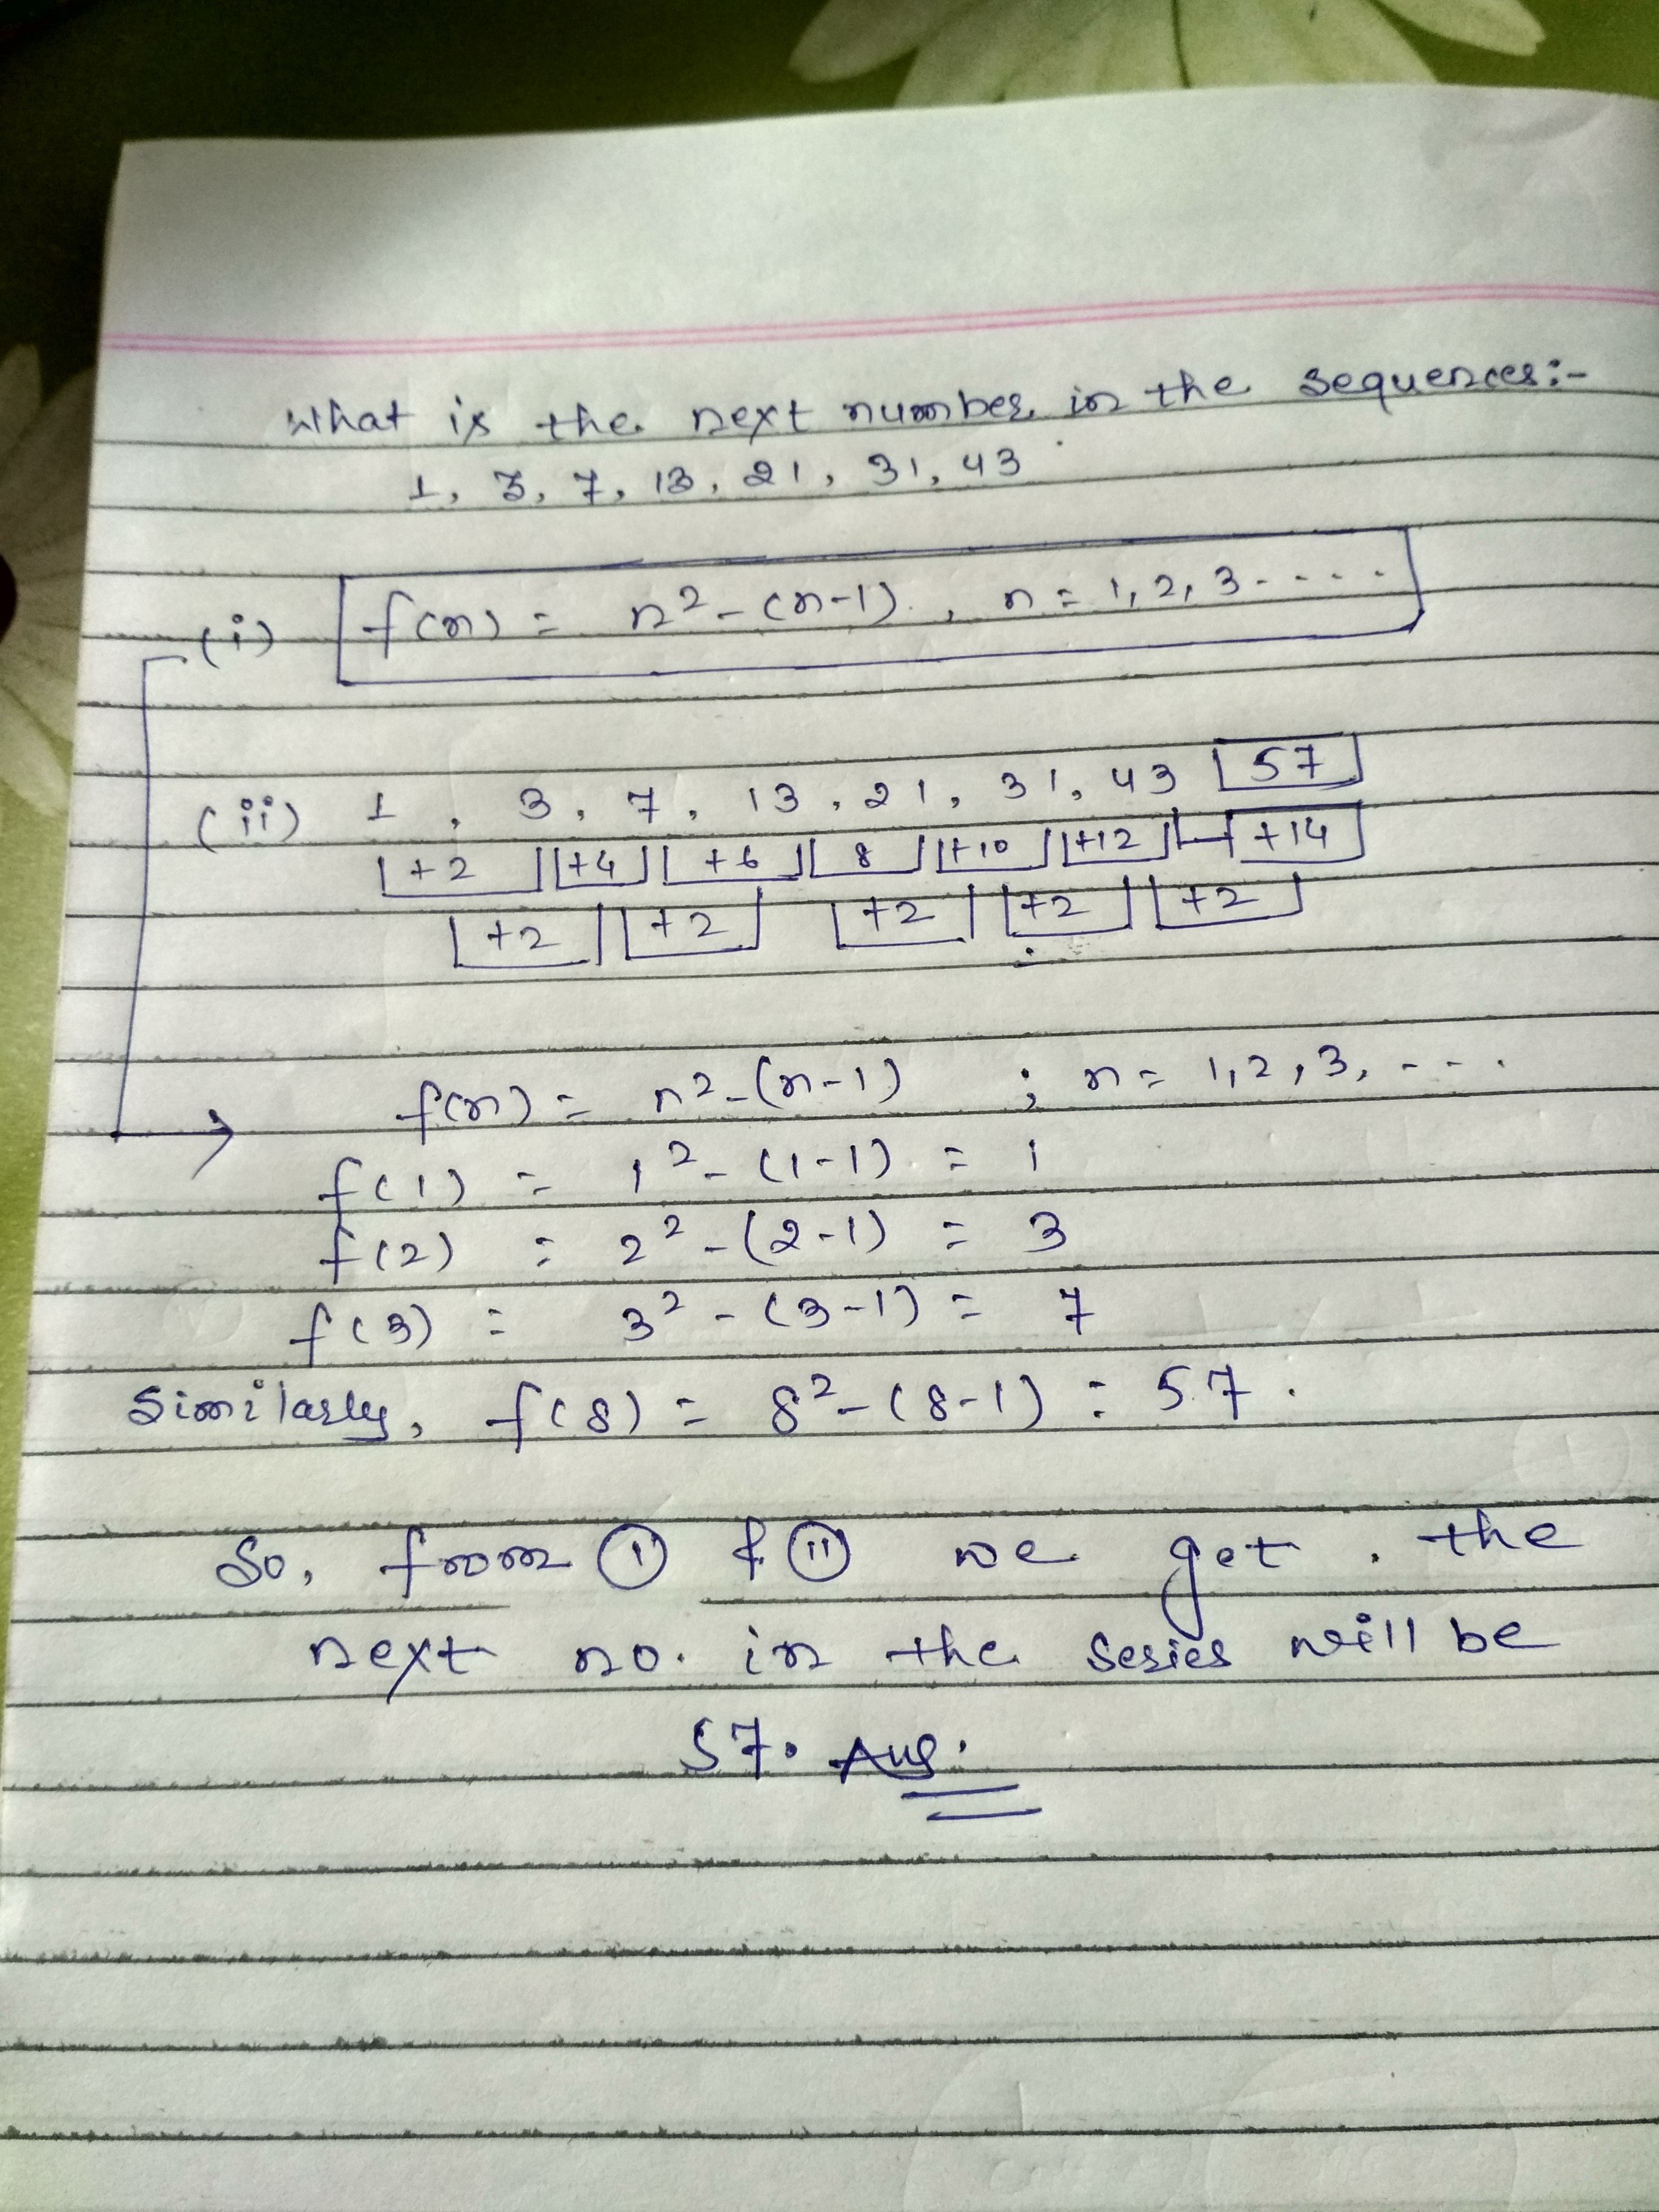 What is the next number in the sequences:-
1, 3, 7, 13, 21, 31, 43
(i) f(n) = n² - (n-1), n = 1, 2, 3 - - - -
(ii) 1, 3, 7, 13, 21, 31, 43 57
+2 +4 +6 8 +10 +12 +14
+2 +2 +2 +2 +2
f(n) = n² - (n-1) ; n = 1, 2, 3, - - -
f(1) = 1² - (1-1) = 1
f(2) = 2² - (2-1) = 3
f(3) = 3² - (3-1) = 7
Similarly, f(8) = 8² - (8-1) = 57.
So, from (i) & (ii) we get, the
next no. in the series will be
57. Ans.